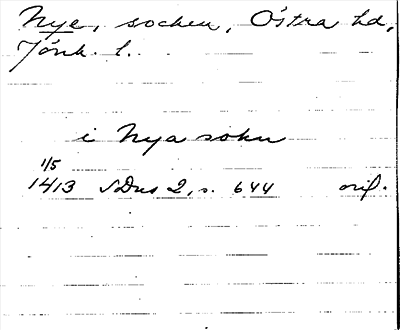 Nye, socken, Östra hd,
Jönk. l.
i Nya sokn
1/5
1413 SDns 2, s. 644 orig.